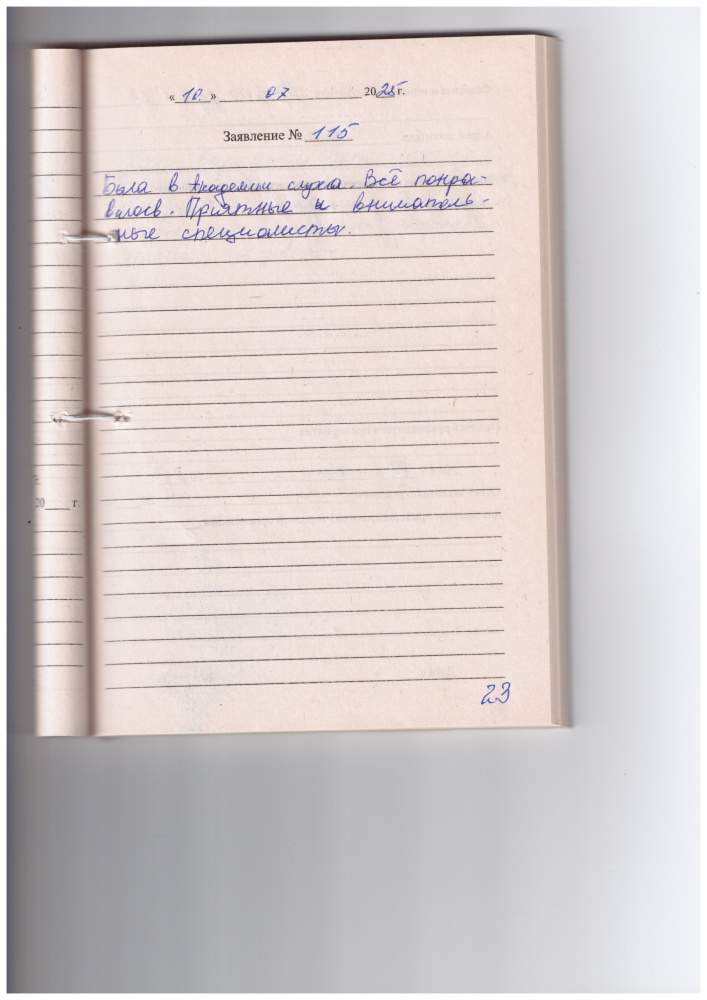 «10.» 07 2025 г.
Заявление № 115
Была в Академии слуха. Всё понра-
вилось. Приятные и вниматель-
ные специалисты.
20 г.
23